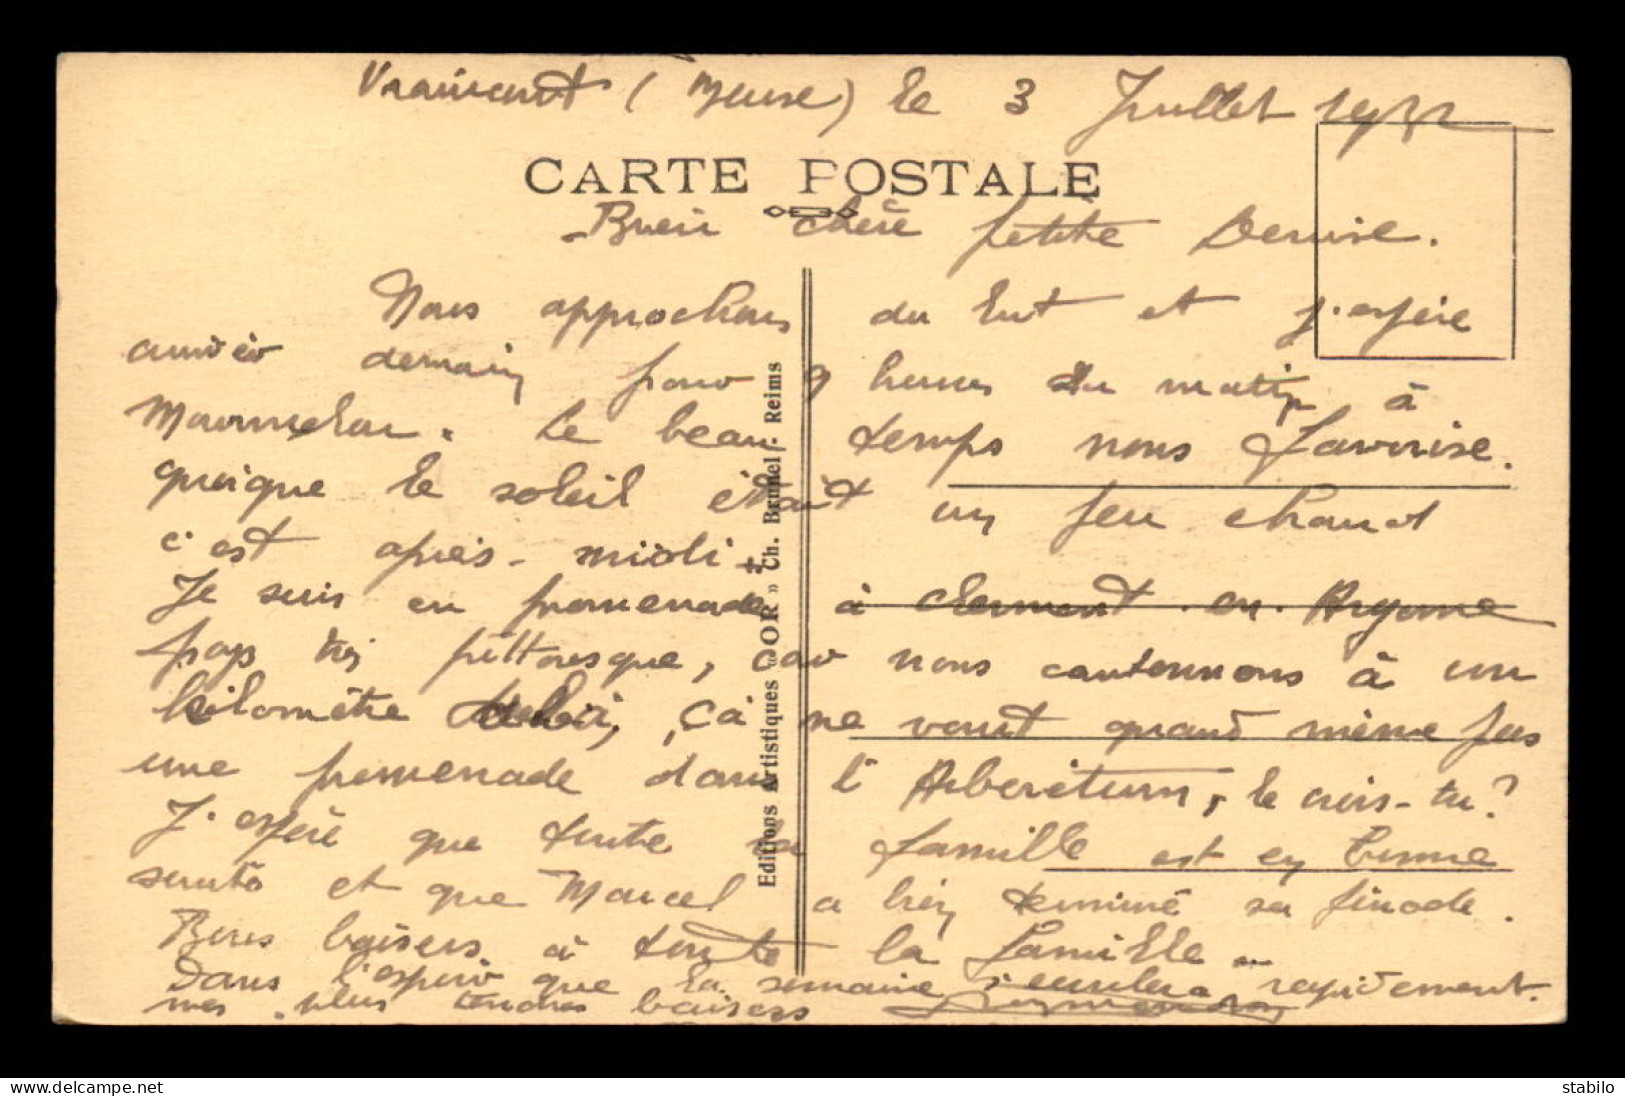 Vraincourt (Meuse) le 3 Juillet 1932
CARTE POSTALE
Bien chère petite Denise.
Nous approchons du but et j'espère
arriver demain pour 9 heures du matin à
Mourmelon. Le beau temps nous favorise.
quoique le soleil était un peu chaud
c'est après-midi.
Je suis en promenade à Clermont-en-Argonne
pays très pittoresque, car nous cantonnons à un
kilomètre ça ne vaut quand même pas
une promenade dans l'Arboretum, le crois-tu?
J'espère que toute la famille est en bonne
santé et que Marcel a bien terminé sa période.
Bons baisers à toute la famille
Dans l'espoir que la semaine s'écoulera rapidement.
mes plus tendres baisers
Editions Artistiques "OR" Ch. Brunel, Reims
stabilo
www.delcampe.net